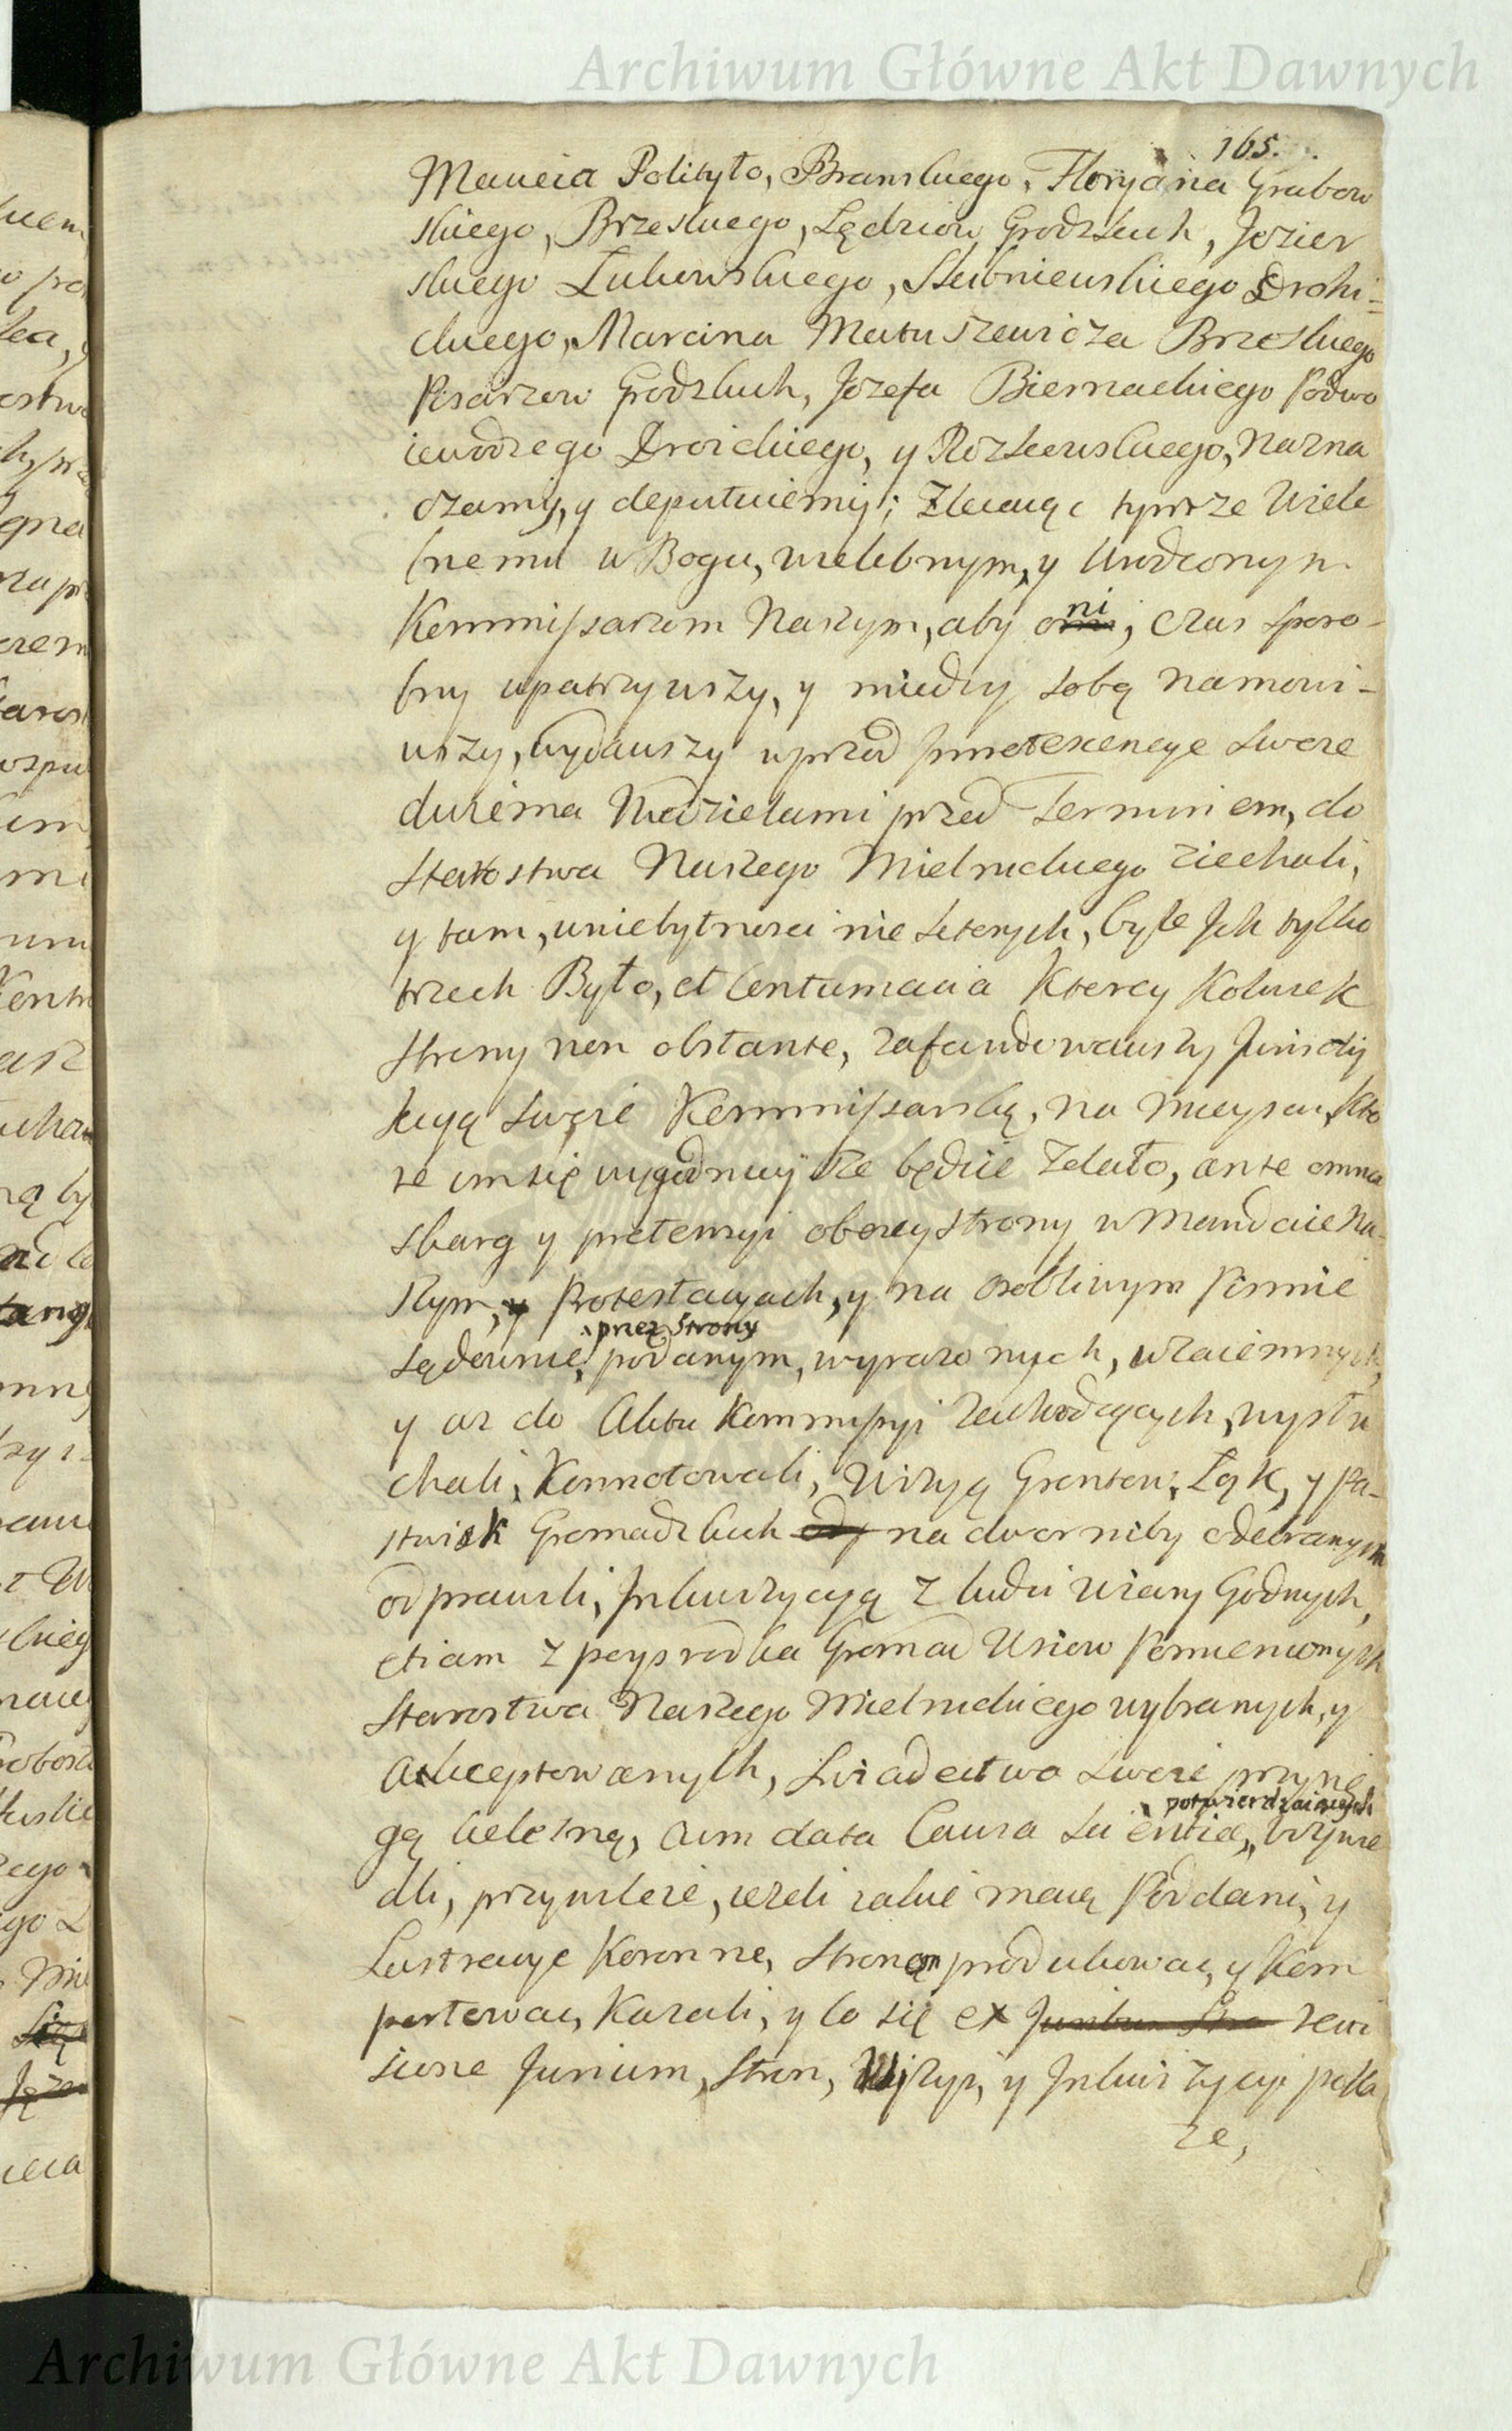 Archiwum Główne Akt Dawnych
165.
Macieia Polityło, Branskiego, Floryana Grabow
skiego, Brzeskiego, Sędziow Grodzkich, Jezier
skiego Łukowskiego, Skibniewskiego Drohi-
ckiego, Marcina Matuszewicza Brzeskiego
Pisarzow Grodzkich, Jozefa Biernackiego Podwo
iewodzego Droickiego, y Roszkowskiego, Nazna
czamy, y deputuiemy; Zlecaiąc tymże Wiele
bnemu w Bogu, wielebnym, y Urodzonym
Kommissarzom Naszym, aby oni, czas sposo-
bny upatrzywszy, y między sobą namowi-
wszy, wydawszy wprzod Innotescencye swoie
dwiema Niedzielami przed Terminem, do
Starostwa Naszego Mielnickiego ziechali,
y tam, w niebytnosci nie ktorych, byle Jch tylko
trzech Było, et Contumacia Ktorey Kolwiek
Strony non obstante, zafundowawszy Jurisdy
kcyą swoię Kommissarską, na mieyscu, Kto
re im się wygodnieysze będzie zdało, ante omnia
skarg y pretensyi obojey strony w Mandacie Na-
szym, y Protestacyach, y na osobliwym Pismie
przez Strony
Sądownie, podanym, wyrazonych, wzaiemnych,
y az do Aktu Kommissyi zachodzących, wysłu
chali, Konnotowali, Wizyą Gruntow, Łąk, y Pa-
stwisk Gromadzkich na dwor niby odebranych
odprawili, Jnkwizycyą z ludzi wiary Godnych,
etiam z posrodka Gromad Wsiow Pomienionych
Starostwa Naszego Mielnickiego wybranych, y
Akceptowanych, swiadectwo swoie przysię
potwierdzaiących
gą cielesną, cum data Causa scientiæ, wywie
dli, przywileie, ieżeli iakie maią Poddani, y
Lustracye Koronne, Stronom produkowac, y Kom
portowac, Kazali, y co się ex rewi
sione Jurium, Stron, Wizyi, y Jnkwizycyi poka
że,
Archiwum Główne Akt Dawnych